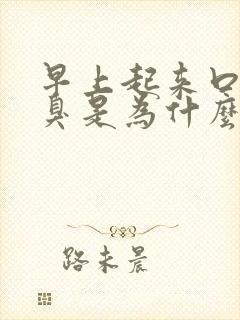 早上起来口
臭是為什麼
路未晨